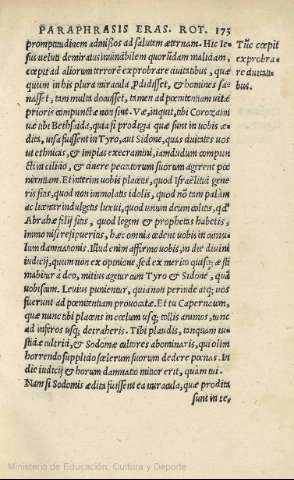 PARAPHRASIS ERAS. ROT. 175
promptitudinem admissos ad salutem æternam. Hic Ie-
sus velut demiratus inuincibilem quorūdam maliciam,
cœpit ad aliorum terrorē exprobrare ciuitatibus, quæ
quum in his plura miracula ædidisset, & homines sa-
nasset, tam multa docuisset, tamen ad pœnitentiam vitæ
prioris compunctæ non sint. Væ, inquit, tibi Corozaim
væ tibi Bethsaida, quia si prodigia quæ sunt in vobis æ-
dita, visa fuissent in Tyro, aut Sidone, quas ciuitates vos
vt ethnicas, & impias execramini, iamdudum compun-
ctæ in cilicio, & cinere peccatorum suorum agerent pœ
nitentiam. Et interim vobis places, quod Israëlitici gene
ris sitis, quod non immolatis idolis, quod nō tam palàm
ac luxuriæ indulgetis luxui, quod vnum deum colitis, qd
Abrahæ filij sitis, quod legem & prophetas habetis,
immo nisi resipueritis, hæc omnia cedent vobis in cumu
lum damnationis. Illud enim affirmo vobis, in die diuini
iudicij, quum non ex opinione, sed ex merito quisq; æsti
mabitur à deo, mitius agetur cum Tyro & Sidone, quàm
vobiscum. Leuius punientur, quia non perinde atq; vos
fuerunt ad pœnitentiam prouocatæ. Et tu Capernaum,
quæ nunc tibi places in cœlum vsq; tollis animos, tunc
ad inferos vsq; detraheris. Tibi plaudis, tanquam iu-
stitiæ cultrici, & Sodomæ cultores abominaris, qui olim
horrendo supplicio scelerum suorum dedere pœnas. In
die iudicij & horum damnatio minor erit, quàm tui.
Nam si Sodomis ædita fuissent ea miracula, quæ prodita
sunt in te,
Tūc cœpit
exprobra-
re ciuitati-
bus.
Ministerio de Educación, Cultura y Deporte